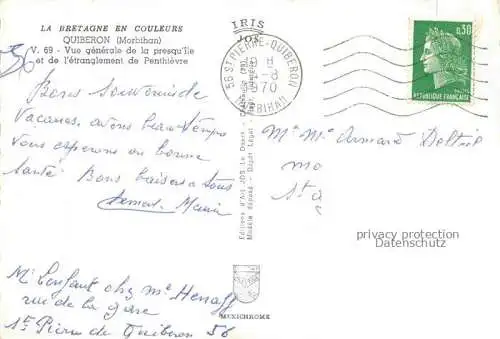 LA BRETAGNE EN COULEURS
QUIBERON (Morbihan)
V. 69 - Vue générale de la presqu'île
et de l'étranglement de Penthièvre
IRIS
JOS
56 ST PIERRE-QUIBERON
8 H
-8
1970
MORBIHAN
0,30
REPUBLIQUE FRANÇAISE
Bons Souvenirs de
Vacances, avons beau temps
vous espérons en bonne
santé Bons baisers a tous
Mr Mme Armand
Editions d'Art JOS Le Doaré - Châteaulin
Modèle déposé - Dépôt Légal
privacy protection
Datenschutz
Mr Lenfant chez Mme Henaff
rue de la gare
St Pierre de Quiberon 56
MEXICHROME